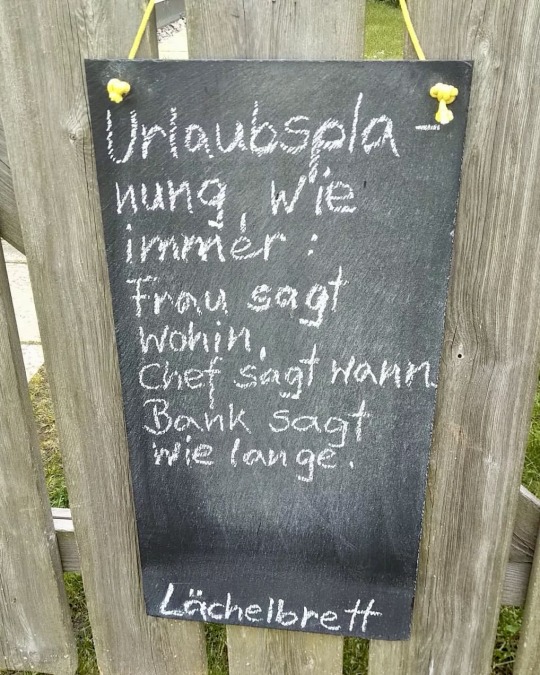 Urlaubspla-
nung, wie
immer:
Frau sagt
wohin,
Chef sagt wann
Bank sagt
wie lange.
Lächelbrett